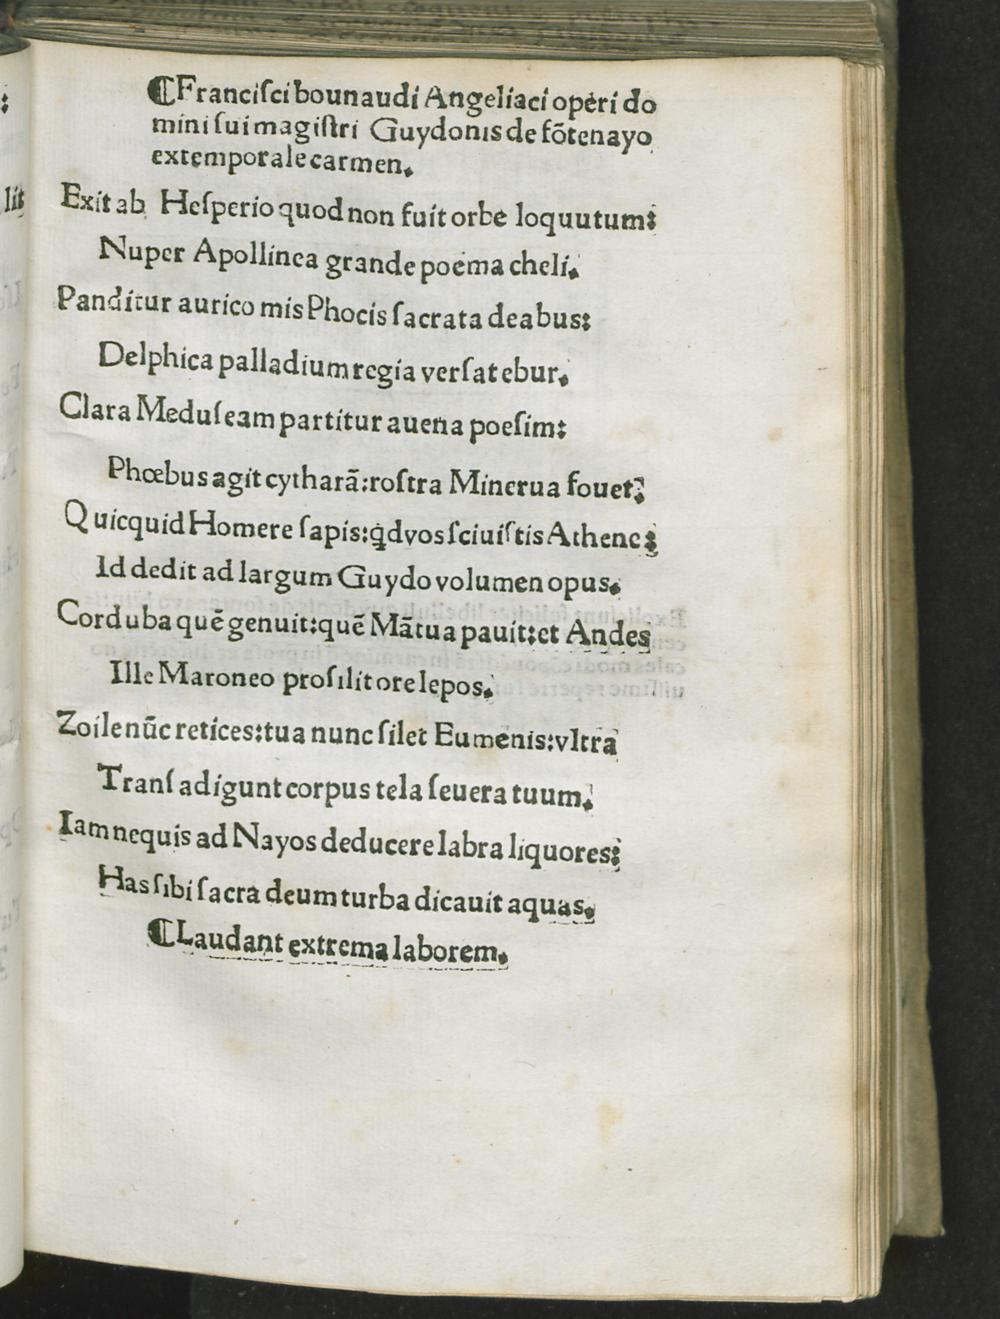 ¶Franciſci bounaudi Angeliaci operi do
mini ſui magiſtri Guydonis de fōtenayo
extemporale carmen.
Exit ab Heſperio quod non fuit orbe loquutum:
Nuper Apollinea grande poema cheli.
Panditur aurico mis Phocis ſacrata deabus:
Delphica palladium regia verſat ebur.
Clara Meduſeam partitur auena poeſim:
Phœbus agit cytharā: roſtra Minerua fouet:
Quicquid Homere ſapis: qd vos ſciuiſtis Athene:
Id dedit ad largum Guydo volumen opus.
Corduba quē genuit: quē Mātua pauit: et Andes
Ille Maroneo proſilit ore lepos.
Zoile nūc retices: tua nunc ſilet Eumenis: vltra
Tranſadigunt corpus tela ſeuera tuum.
Iam nequis ad Nayos deducere labra liquores:
Has ſibi ſacra deum turba dicauit aquas.
¶Laudant extrema laborem.